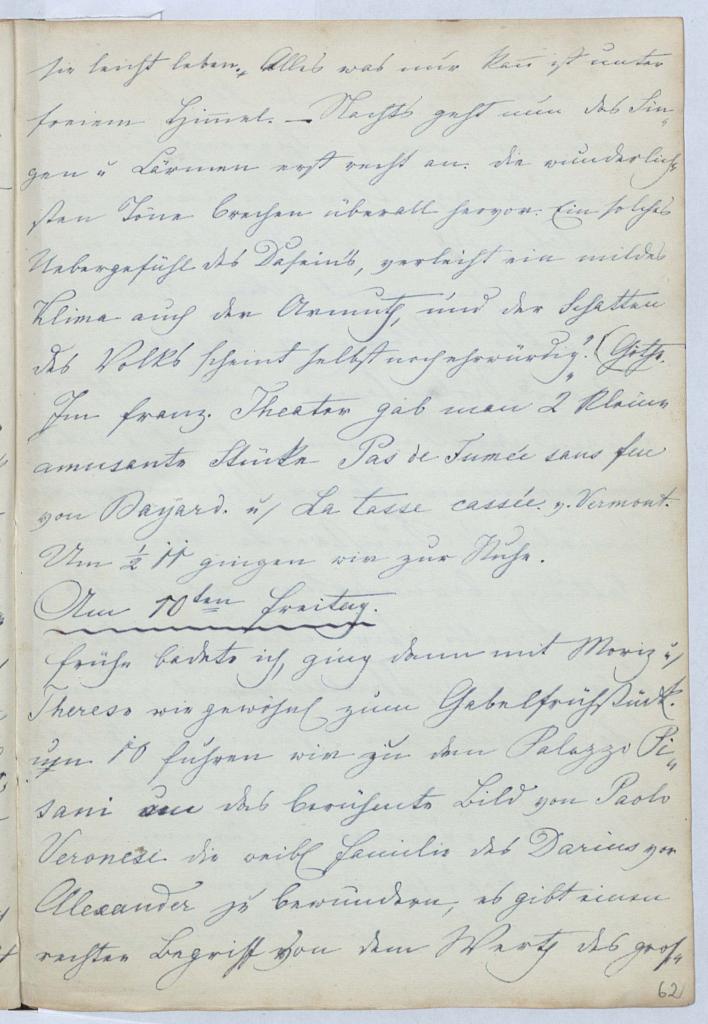 sie leicht leben. Alles was nur kañ ist unter
freiem Him̄el. — Nachts geht nun das Sin„
gen u Lärmen erst recht an. die wunderlich„
sten Töne brechen überall hervor. Ein solches
Uebergefühl des Daseins, verleiht ein mildes
Klima auch der Armuth, und der Schatten
des Volks scheint selbst noch ehrwürdig". (Göthe.
Im franz. Theater gab man 2 kleine
amusante Stücke Pas de Fumée sans feu
von Bayard. u/ La tasse cassée. v. Vermont.
Um ½ 11 gingen wir zur Ruhe.
Am 10ten Freitag.
frühe badete ich, ging dann mit Moriz u/
Therese wie gewöhnl zum Gabelfrühstück.
um 10 fuhren wir zu dem Palazzo Pi„
sani um das berühmte Bild von Paolo
Veronese die weibl Familie des Darius vor
Alexander zu bewundern, es gibt einen
rechten Begriff von dem Werth des gros„
62